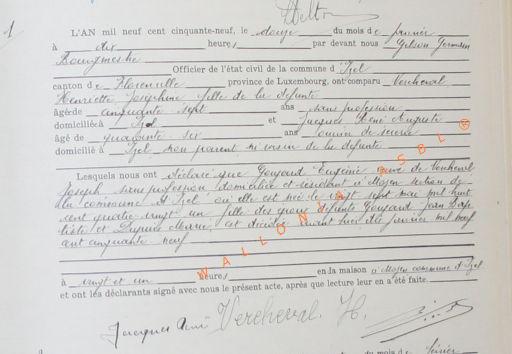 1
L'AN mil neuf cent cinquante-neuf, le douze du mois de janvier
à dix heures par devant nous Gelson Germain
Bourgmestre
Officier de l'état civil de la commune d'Izel
canton de Florenville province de Luxembourg, ont comparu Vercheval
Henriette Joséphine fille de la défunte
âgée de cinquante sept ans sans profession
domiciliée à Izel et Jacques René Auguste
âgé de quarante-six ans ouvrier de scierie
domicilié à Izel non parent ni voisin de la défunte
Lesquels nous ont déclaré que Goujard Eugénie veuve de Vercheval
Joseph sans profession domiciliée et résidant à Moyen section de
la commune d'Izel où elle est née le vingt sept mai mil huit
cent quatre vingt un fille des époux défunts Goujard Jean Bap
tiste et Dupuis Marie est décédée janvier mil neuf
cent cinquante neuf
WALLONIA ASBL ®
à vingt et un heures en la maison à Moyen commune d'Izel
et ont les déclarants signé avec nous le présent acte, après que lecture leur en a été faite.
Jacques René Vercheval. H.